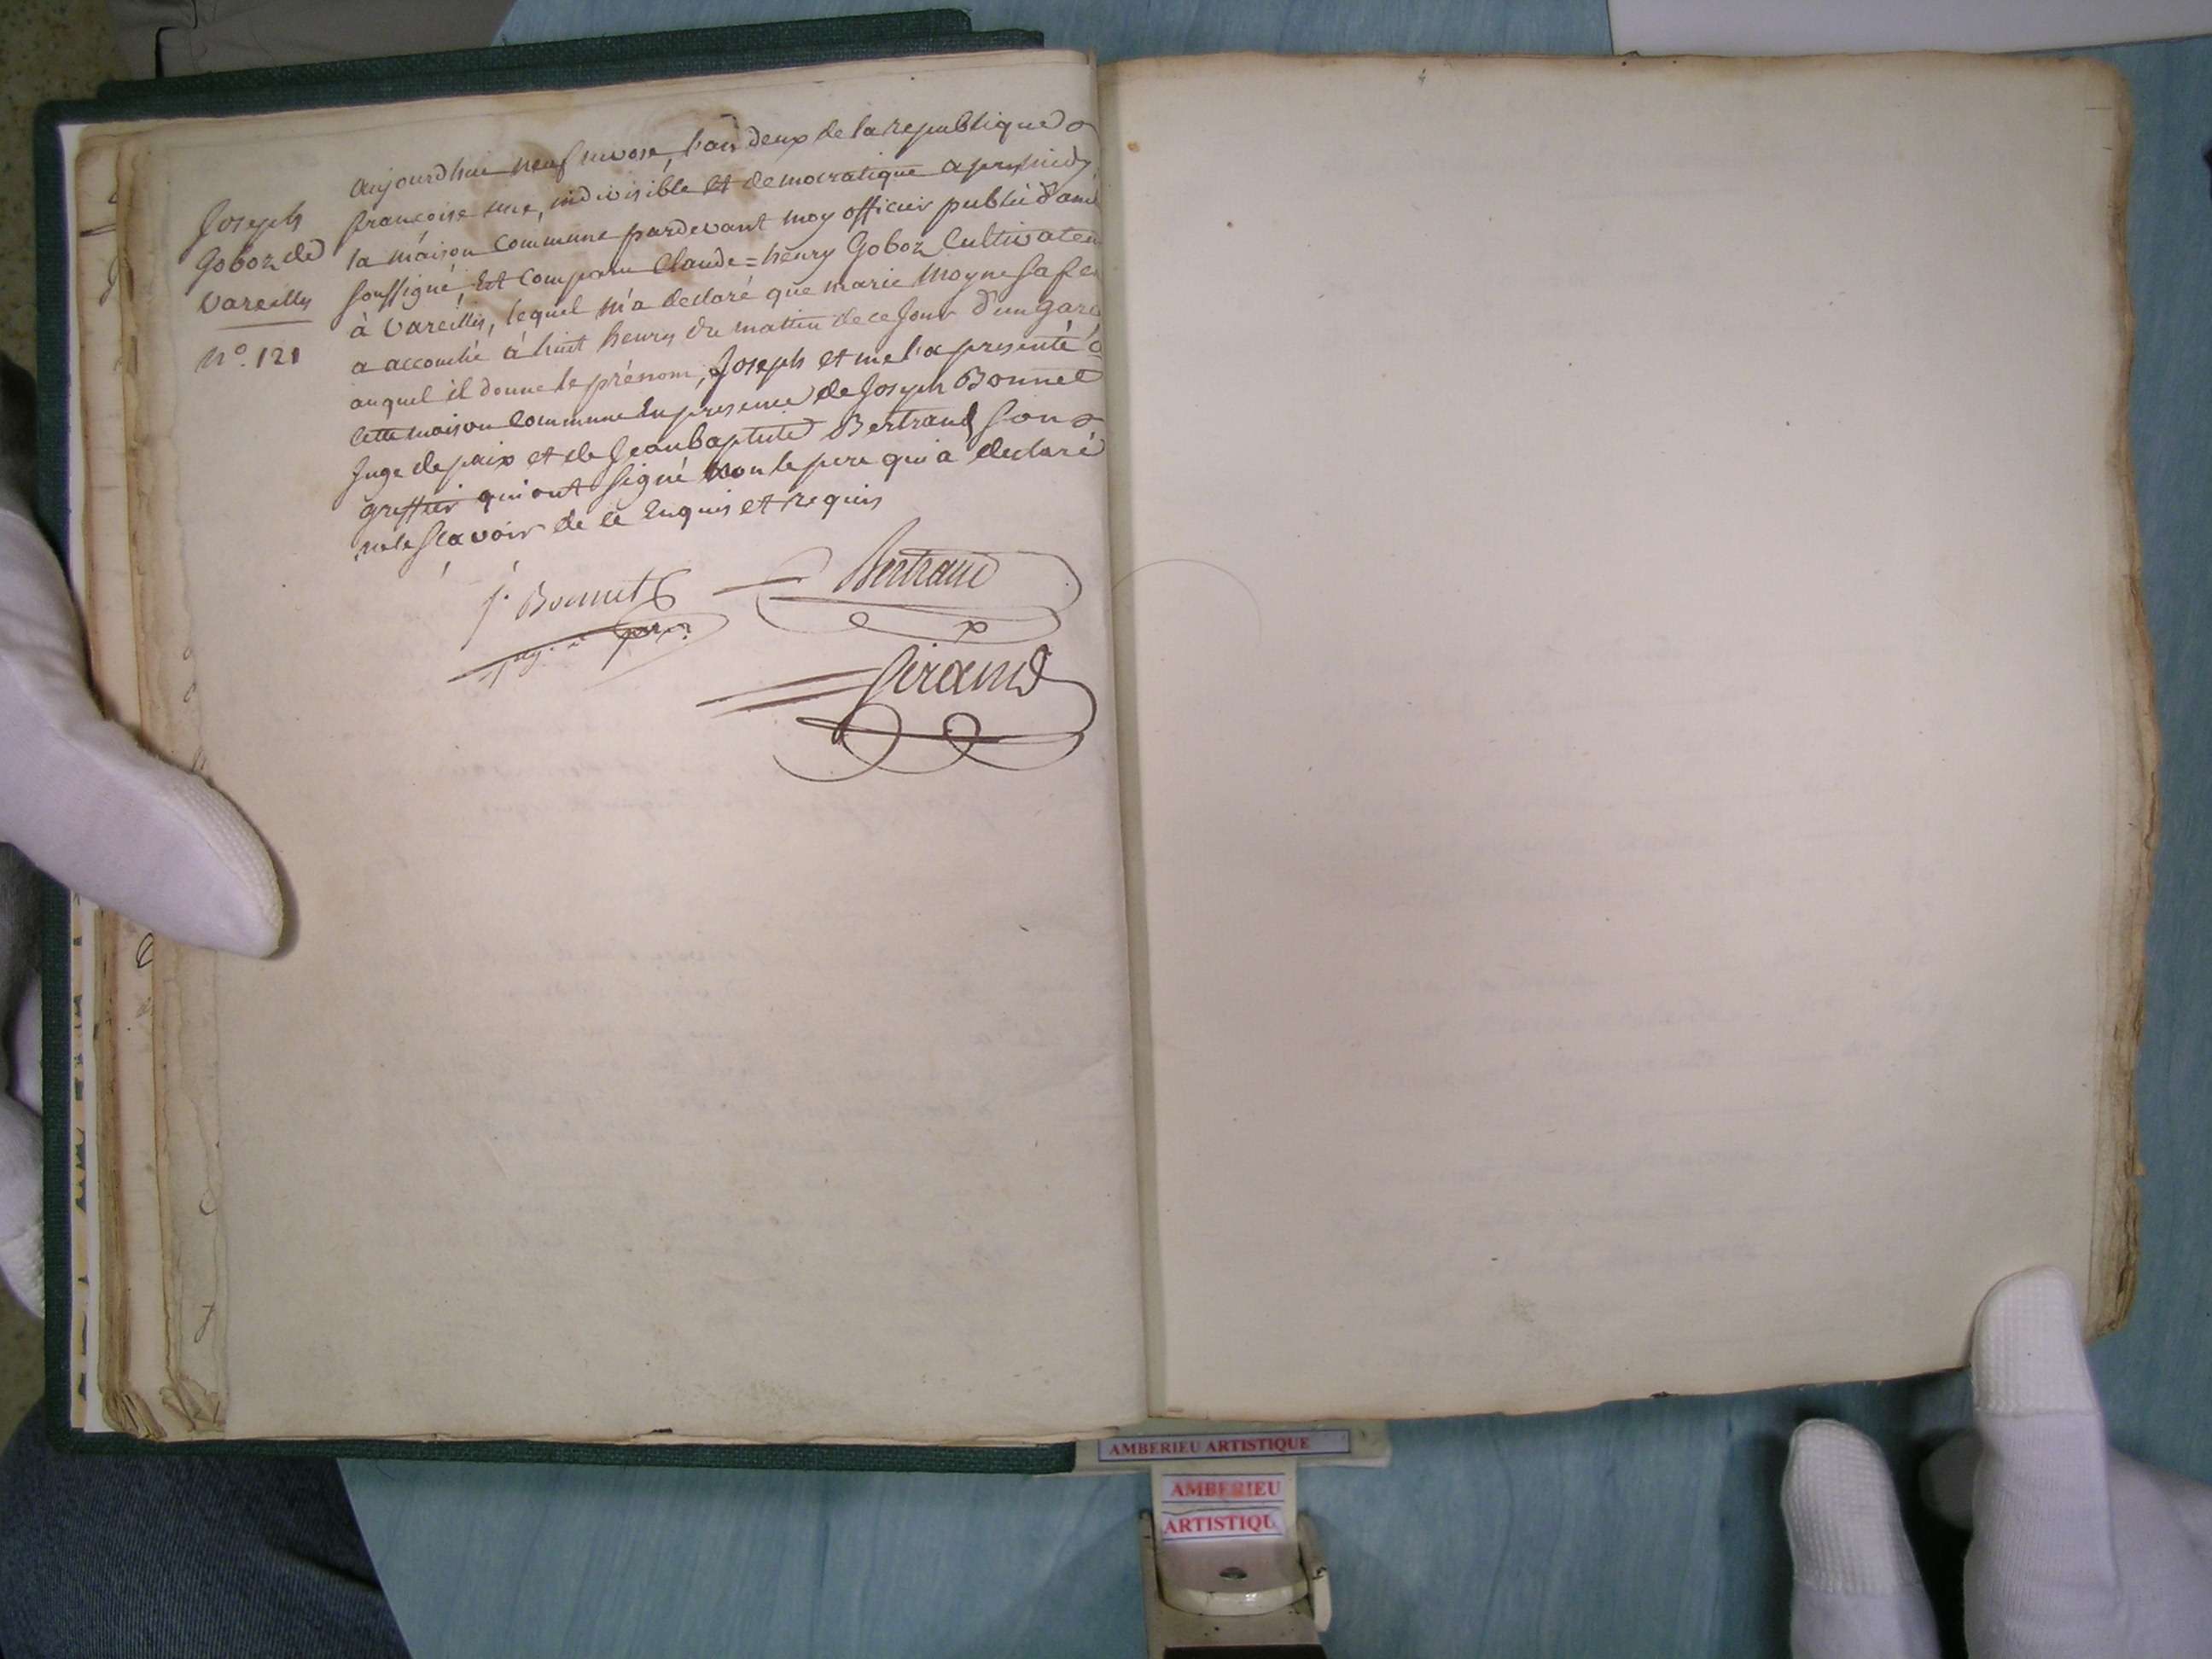 Joseph
Goboz de
Vareilles
N°. 121
aujourdhui neuf nivose, l'an deux de la republique
françoise une, indivisible et democratique apres midy,
la maison commune pardevant moy officier public
soussigné, Est comparu Claude=henry Goboz Cultivateu
à Vareilles, lequel m'a declaré que marie moyne sa fe
a accouché à huit heures du matin de ce jour d'un garç
auquel il donne le prénom, Joseph et me l'a presenté
cette maison commune En presence de Joseph Bonnet
Juge de paix et de Jean baptiste Bertrand son
greffier qui ont signé non le pere qui a declaré
ne le sçavoir de ce Enquis et requis
J. Bonnet
juge de paix
Bertrand
Giraud
AMBERIEU ARTISTIQUE
AMBERIEU
ARTISTIQU